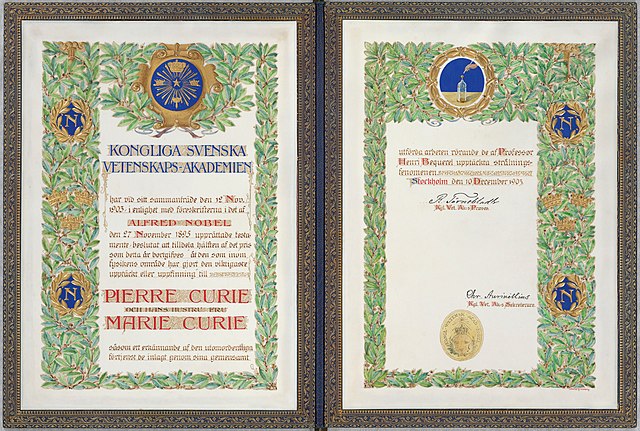 KONGLIGA SVENSKA
VETENSKAPS-AKADEMIEN
har vid sitt sammanträde den 12 Nov.
1903 i enlighet med föreskrifterna i det af
ALFRED NOBEL
den 27 November 1895 upprättade testa-
mente beslutat att tilldela hälften af det pris
som detta år bortgifves åt den som inom
fysikens område har gjort den viktigaste
upptäckt eller uppfinning till
PIERRE CURIE
OCH HANS HUSTRU FRU
MARIE CURIE
såsom ett erkännande af den utomordentliga
förtjenst de inlagt genom sina gemensamt
N
N
utförda arbeten rörande de af Professor
Henri Becquerel upptäckta strålnings-
fenomenen.
Stockholm den 10 December 1903
Kgl. Vet. Ak:s Præses
Chr. Aurivillius
Kgl. Vet. Ak:s Sekreterare
N
N